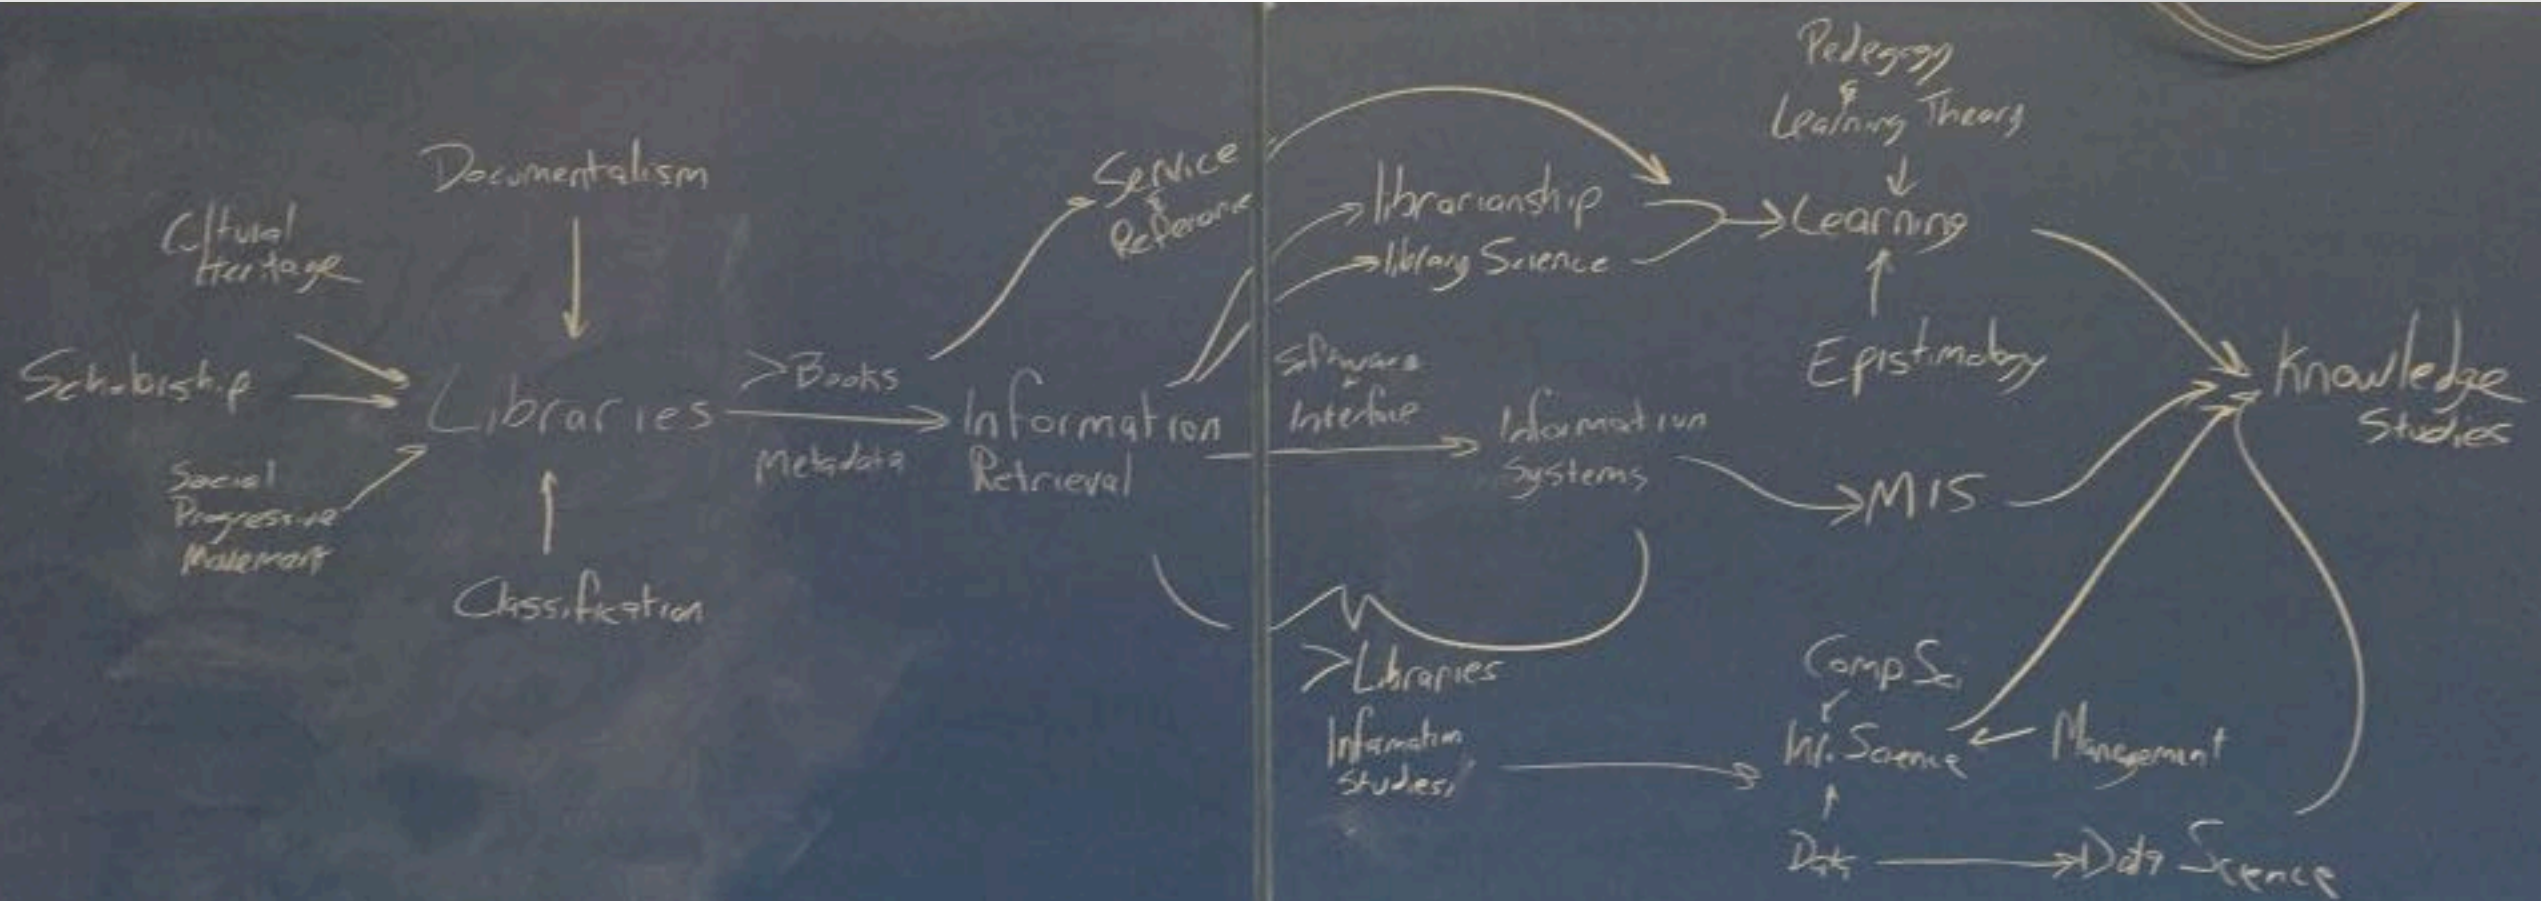 Documentalism
Cultural
Heritage
Scholarship
Social
Progressive
Movement
Libraries
Classification
>Books
Metadata
Information
Retrieval
Service
&
Reference
librarianship
library Science
Software
Interface
Information
Systems
>Libraries
Information
Studies
Pedegogy
&
Learning Theory
Learning
Epistimology
MIS
Comp Sci
Inf. Science
Management
Data
Data Science
Knowledge
Studies